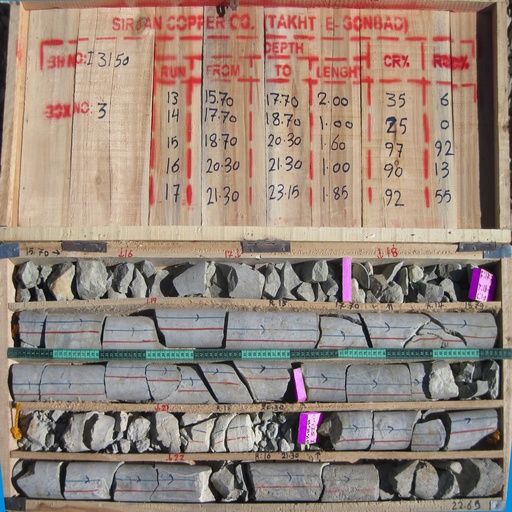 SIRJAN COPPER CO. (TAKHT E-GONBAD)
BH NO: I 3150
DEPTH
RUN FROM TO LENGH CR% RQD%
BOX NO: 3
13 15.70 17.70 2.00 35 6
14 17.70 18.70 1.00 25 0
15 18.70 20.30 1.60 97 92
16 20.30 21.30 1.00 90 13
17 21.30 23.15 1.85 92 55
15.70 → ↓16 17↓ ↓18
↓21
↓22 R:16 21.30